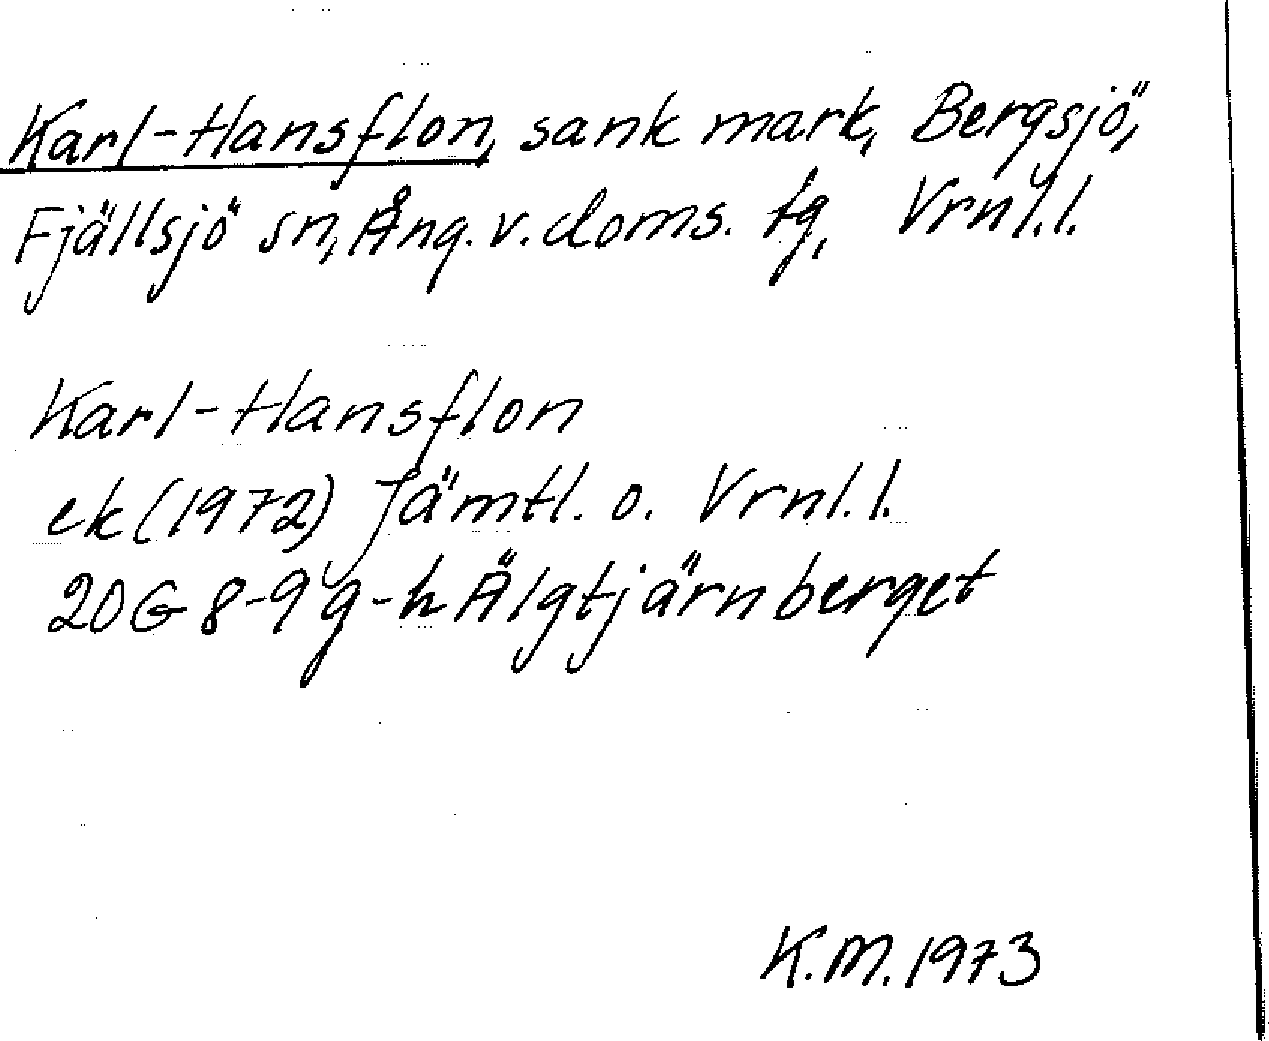 Karl-Hansflon, sank mark, Bergsjö,
Fjällsjö sn, Ång. v. doms. tg, Vrnl.l.
Karl-Hansflon
ek (1972) Jämtl. o. Vrnl.l.
20G 8-9 g-h Älgtjärnberget
K.M. 1973